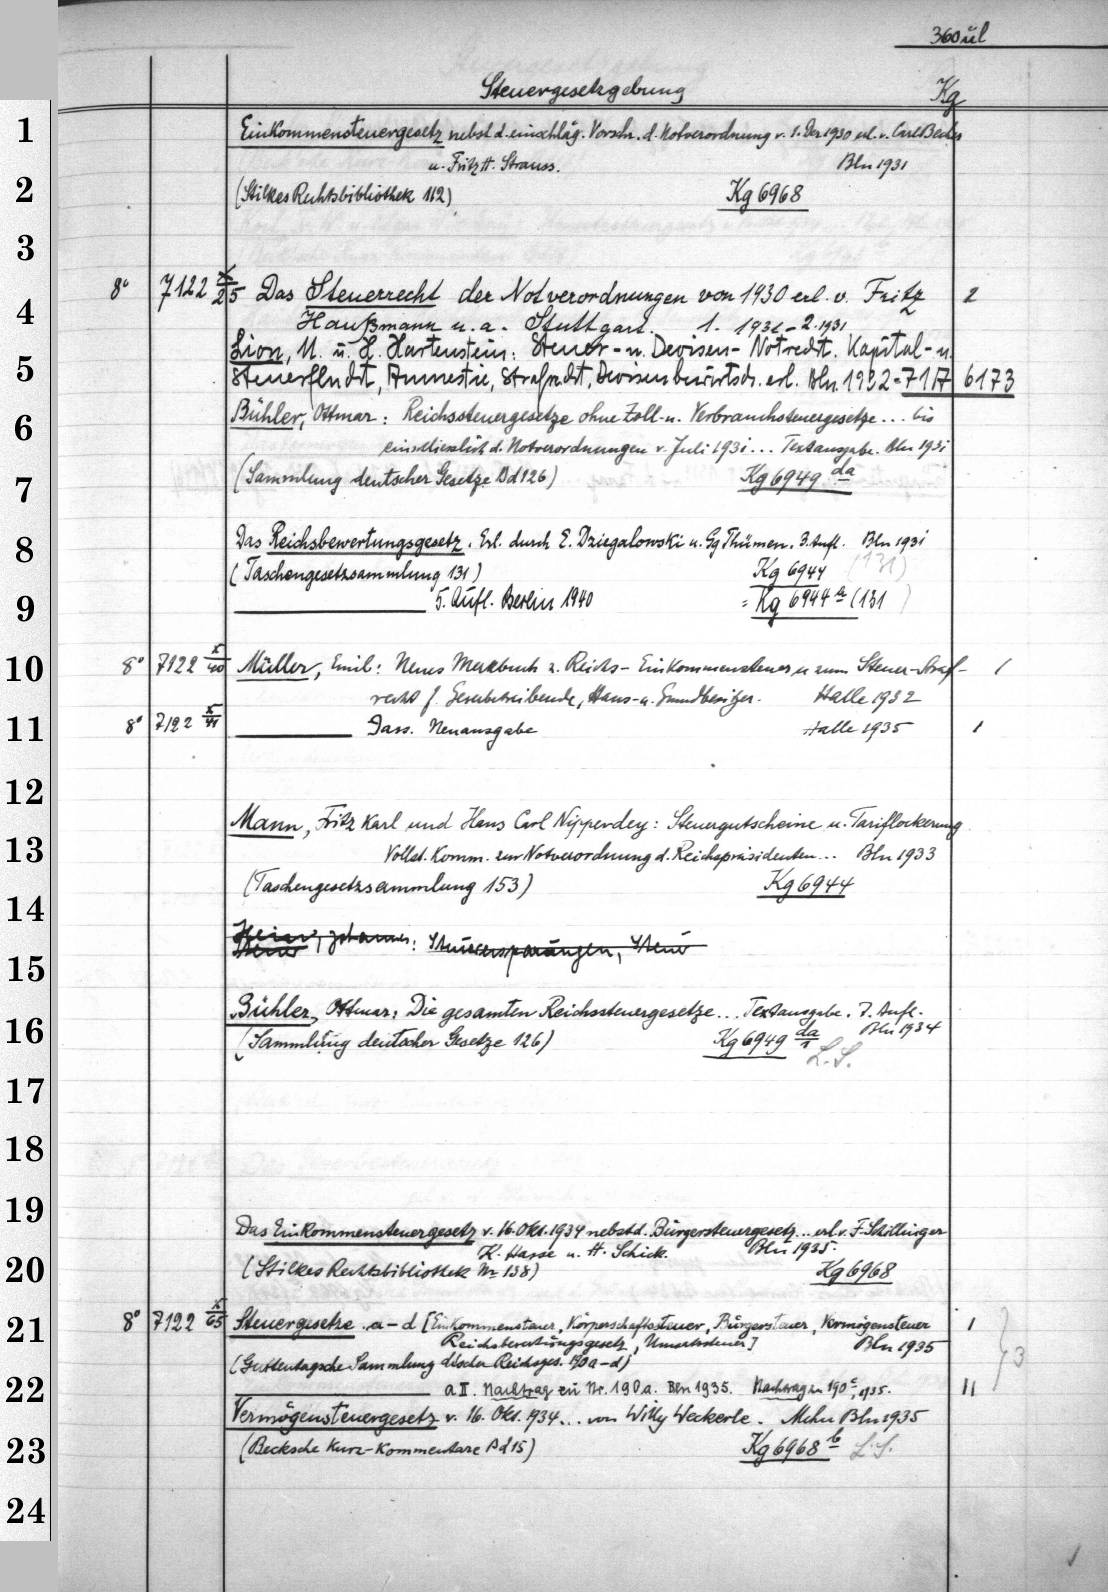 360 ül
Steuergesetzgebung Kg
1 Einkommensteuergesetz nebst d. einschläg. Vorschr. d. Notverordnung v. 1. Dez 1930 erl. v. Carl Becher
u. Fritz H. Strauss. Bln 1931
2 (Stilkes Rechtsbibliothek 112) Kg 6968
3
8° 7122 x/25 Das Steuerrecht der Notverordnungen von 1930 erl. v. Fritz 2
4 Haußmann u. a. Stuttgart. 1. 1931-2. 1931
Lion, M. u. H. Hartenstein: Steuer- u. Devisen-Notrecht. Kapital- u.
5 Steuerflucht, Amnestie, Strafrecht, Devisenbewirtsch. erl. Bln. 1932 = 7117 6173
6 Bühler, Ottmar: Reichssteuergesetze ohne Zoll- u. Verbrauchsteuergesetze ... bis
einschliesslich d. Notverordnungen v. Juli 1931 ... Textausgabe. Bln 1931
7 (Sammlung deutscher Gesetze Bd 126) Kg 6949 da
8 Das Reichsbewertungsgesetz. Erl. durch E. Dziegalowski u. Gg Thümen. 3. Aufl. Bln 1931
(Taschengesetzsammlung 131) Kg 6944 (131)
9 5. Aufl. Berlin 1940 = Kg 6944 a (131)
10 8° 7122 x/40 Müller, Emil: Neues Merkbuch z. Reichs-Einkommensteuer u. zum Steuer-Straf- 1
recht f. Gewerbetreibende, Haus- u. Grundbesitzer. Halle 1932
11 8° 7122 x/41 Dass. Neuausgabe Halle 1935 1
12
Mann, Fritz Karl und Hans Carl Nipperdey: Steuergutscheine u. Tariflockerung
13 Vollst. Komm. zur Notverordnung d. Reichspräsidenten ... Bln 1933
14 (Taschengesetzsammlung 153) Kg 6944
Johannes: Steuerersparungen, Steuer
15
Bühler, Ottmar: Die gesamten Reichssteuergesetze ... Textausgabe. 7. Aufl.
16 Bln 1934
(Sammlung deutscher Gesetze 126) Kg 6949 da/1 L.S.
17
18
19 Das Einkommensteuergesetz v. 16. Okt. 1934 nebst d. Bürgersteuergesetz ... erl. v. F. Schillinger
K. Hasse u. H. Schick. Bln 1935.
20 (Stilkes Rechtsbibliothek Nr 138) Kg 6968
21 8° 7122 x/65 Steuergesetze a-d [Einkommensteuer, Körperschaftssteuer, Bürgersteuer, Vermögensteuer 1
Reichsbewertungsgesetz, Umsatzsteuer] Bln 1935 3
(Guttentagsche Sammlung dtscher Reichsges. 190a-d)
22 a II. Nachtrag zu Nr. 190a. Bln 1935. Nachtrag zu 190 c, 1935. 11
Vermögensteuergesetz v. 16. Okt. 1934 ... von Willy Weckerle. Mchn Bln 1935
23 (Becksche Kurz-Kommentare Bd 15) Kg 6968 b L.S.
24